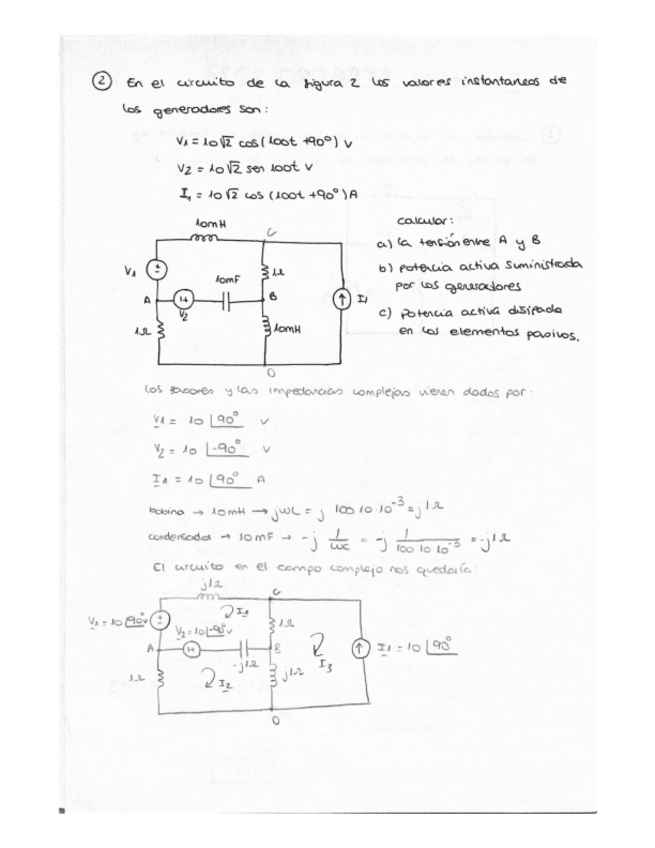 2 En el circuito de la figura 2 los valores instantaneos de
los generadores son:
V1 = 10√2 cos(100t +90°) V
V2 = 10√2 sen 100t V
I1 = 10√2 cos (100t +90°) A
10mH
C
V1
10mF
1Ω
A
B
V2
I1
1Ω
10mH
O
calcular:
a) la tensión entre A y B
b) potencia activa suministrada
por los generadores
c) potencia activa disipada
en los elementos pasivos.
los fasores y las impedancias complejas vienen dados por:
V1 = 10 |90° V
V2 = 10 |-90° V
I1 = 10 |90° A
bobina → 10mH → jωL = j 100 10·10^-3 = j1Ω
condensador → 10mF → -j 1/ωC = -j 1/100 10 10^-3 = -j1Ω
El circuito en el campo complejo nos quedaría:
j1Ω
C
I1
V1 = 10 |90° V
V2 = 10 |-90° V
1Ω
A
B
-j1Ω
I3
I1 = 10 |90°
1Ω
I2
j1Ω
O